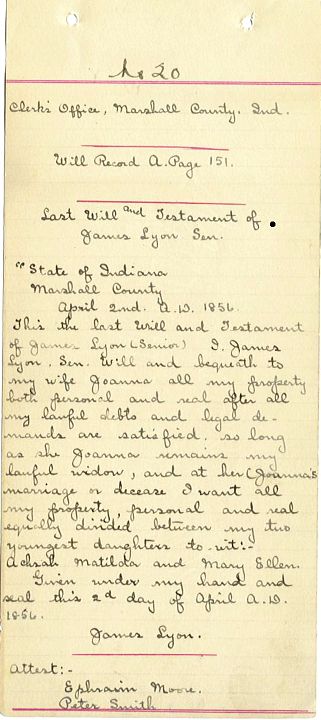 No 20
Clerk's Office, Marshall County, Ind.
Will Record A. Page 151.
Last Will and Testament of
James Lyon Sen.
"State of Indiana
Marshall County
April 2nd. A.D. 1856.
This the last Will and Testament
of James Lyon (Senior) I. James
Lyon, Sen. Will and bequeth to
my wife Joanna all my property
both personal and real after all
my lawful debts and legal de-
mands are satisfied, so long
as she Joanna remains my
lawful widow, and at her (Joanna's
marriage or decease I want all
my property, personal and real
equally divided between my two
youngest daughters to-wit:-
Achsah Matilda and Mary Ellen.
Given under my hand and
seal this 2d day of April A.D.
1856.
James Lyon.
Attest:-
Ephraim Moore.
Peter Smith